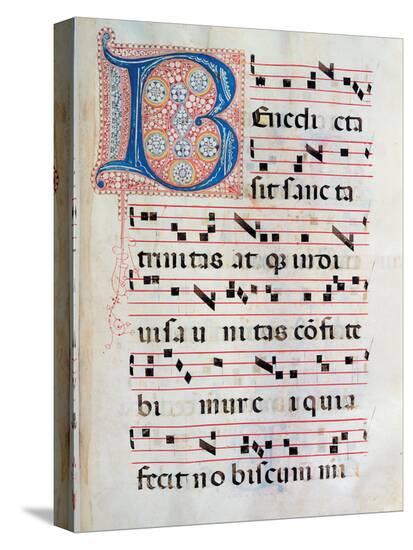 Benedicta
sit sancta
trinitas atq; indi
uisa u nitas cōfite
bi mur e i quia
fecit no biscum mi